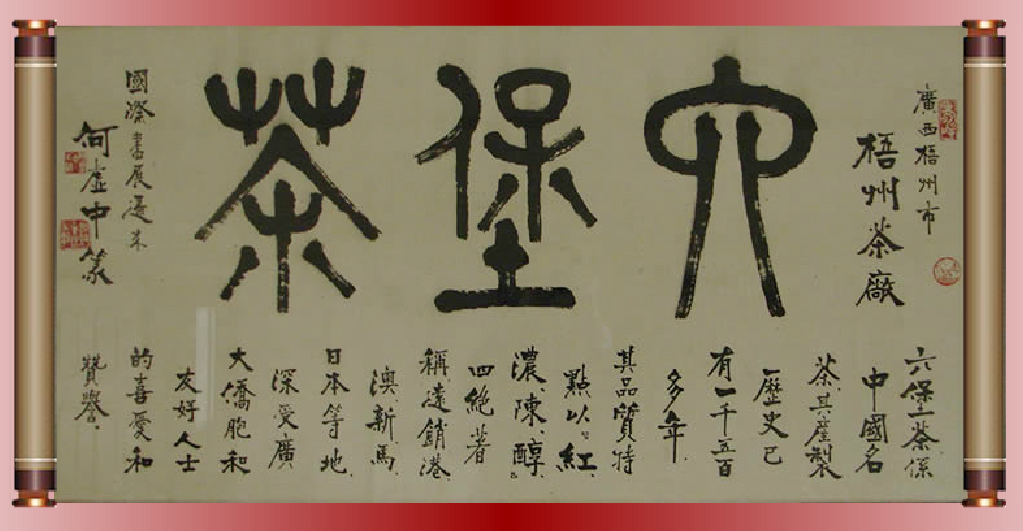 廣西梧州市
梧州茶廠
六堡茶
六堡茶係
中國名
茶、其產製
歷史已
有一千五百
多年、
其品質特
點以、紅、
濃、陳、醇、
四絕著
稱遠銷港、
澳、新、馬、
日本等地、
深受廣
大僑胞和
友好人士
的喜愛和
贊譽、
國際書展
何虛中篆